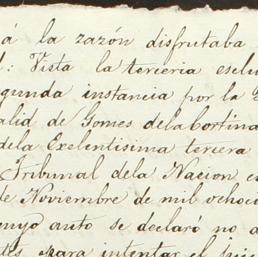 á la zazón disfrutaba
: Vista la terceria esclu
gunda instancia por la
alia de Gomes delabortina
dela Exelentisima tercera
Tribunal dela Nacion e
de Noviembre de mil ochoci
enyo auto se declaró no a
para intentar el